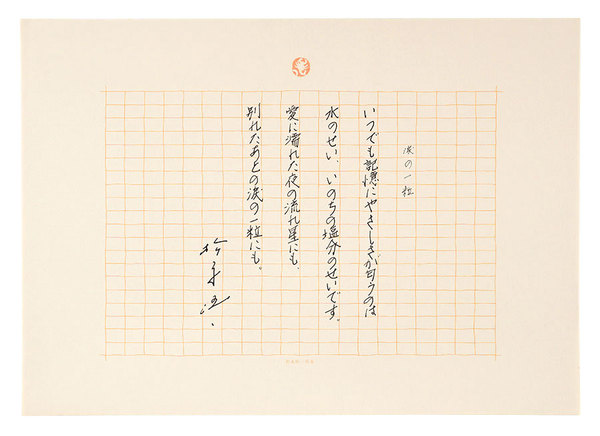 涙の一粒
いつでも記憶にやさしさが匂うのは
水のせい、いのちの塩分のせいです。
愛に濡れた夜の流れ星にも、
別れたあとの涙の一粒にも。